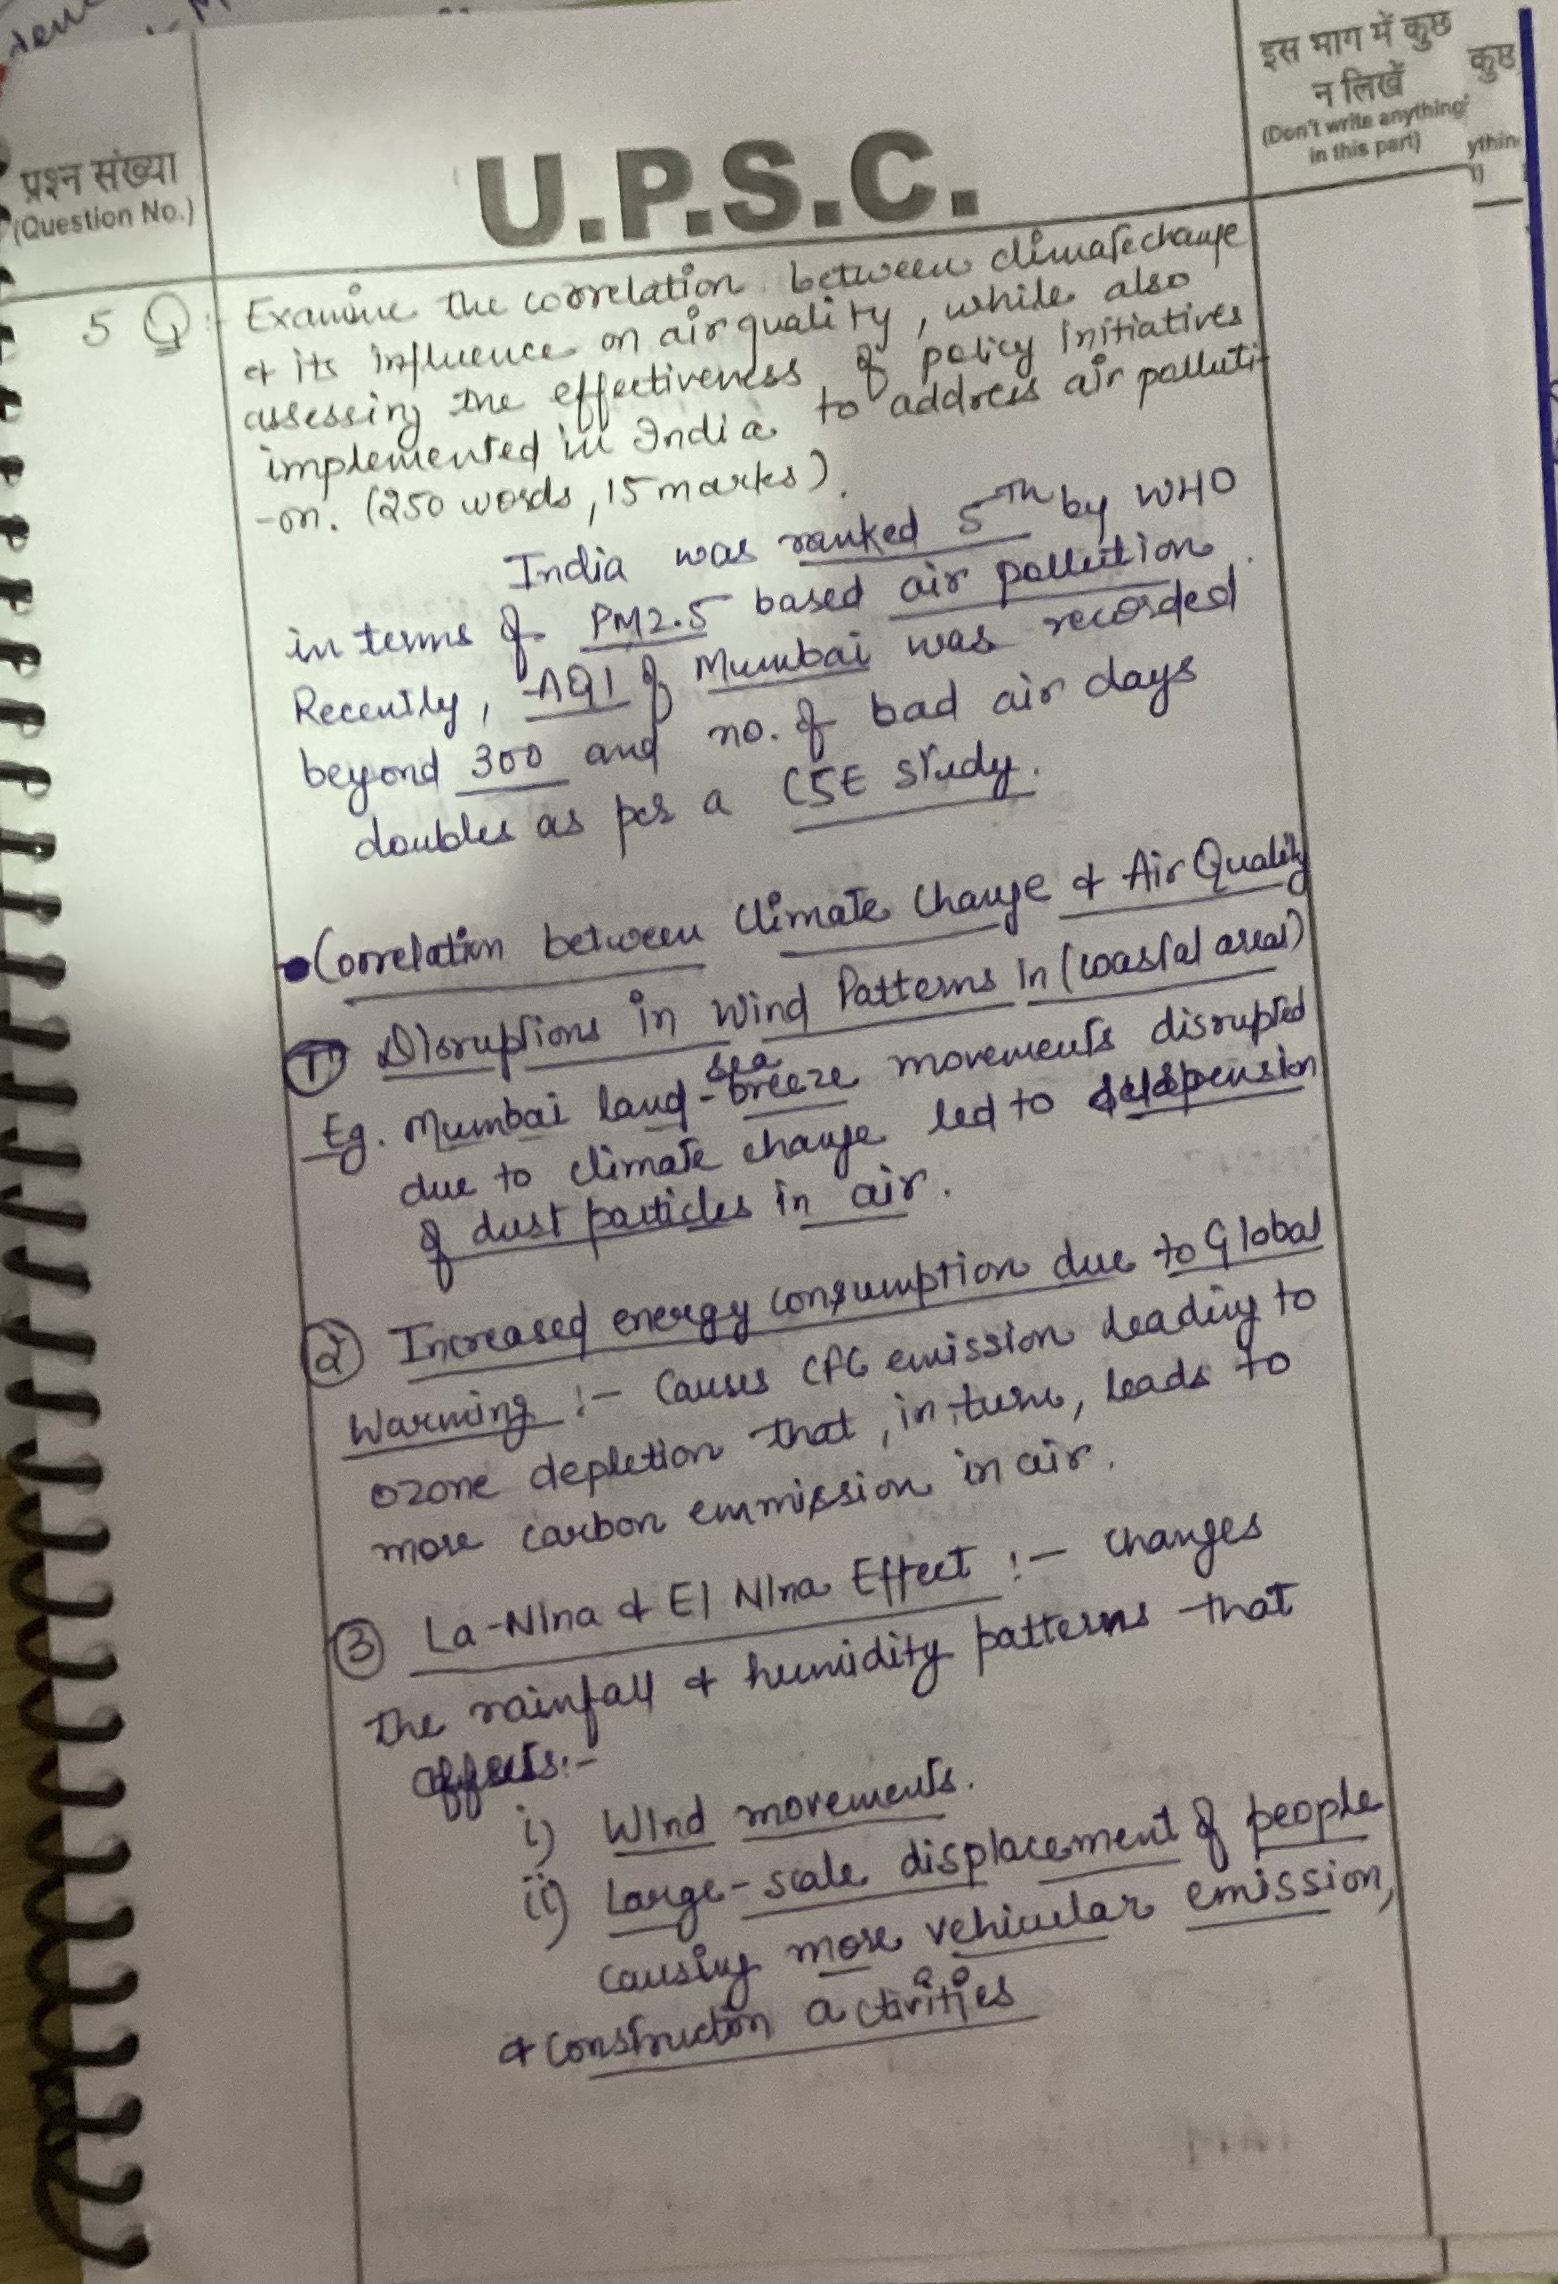 इस भाग में कुछ
न लिखें
(Don't write anything
in this part)
कुछ
ything
प्रश्न संख्या
(Question No.)
U.P.S.C.
5 Q:- Examine the correlation between climate change
& its influence on air quality, while also
assessing the effectiveness of policy initiatives
implemented in India to address air polluti-
-on. (250 words, 15 marks).
India was ranked 5th by WHO
in terms of PM2.5 based air pollution.
Recently, AQI of Mumbai was recorded
beyond 300 and no. of bad air days
doubles as per a CSE study.
• Correlation between Climate Change & Air Quality
① Disruptions in Wind Patterns in (coastal areas)
Eg. Mumbai land-sea breeze movements disrupted
due to climate change led to suspension
of dust particles in air.
② Increased energy consumption due to Global
Warming :- Causes CFC emission leading to
ozone depletion that, in turn, leads to
more carbon emmission in air.
③ La-Nina & El Nina Effect :- Changes
the rainfall & humidity patterns that
affects:-
i) Wind movements.
ii) Large-scale displacement of people
causing more vehicular emission,
& construction activities